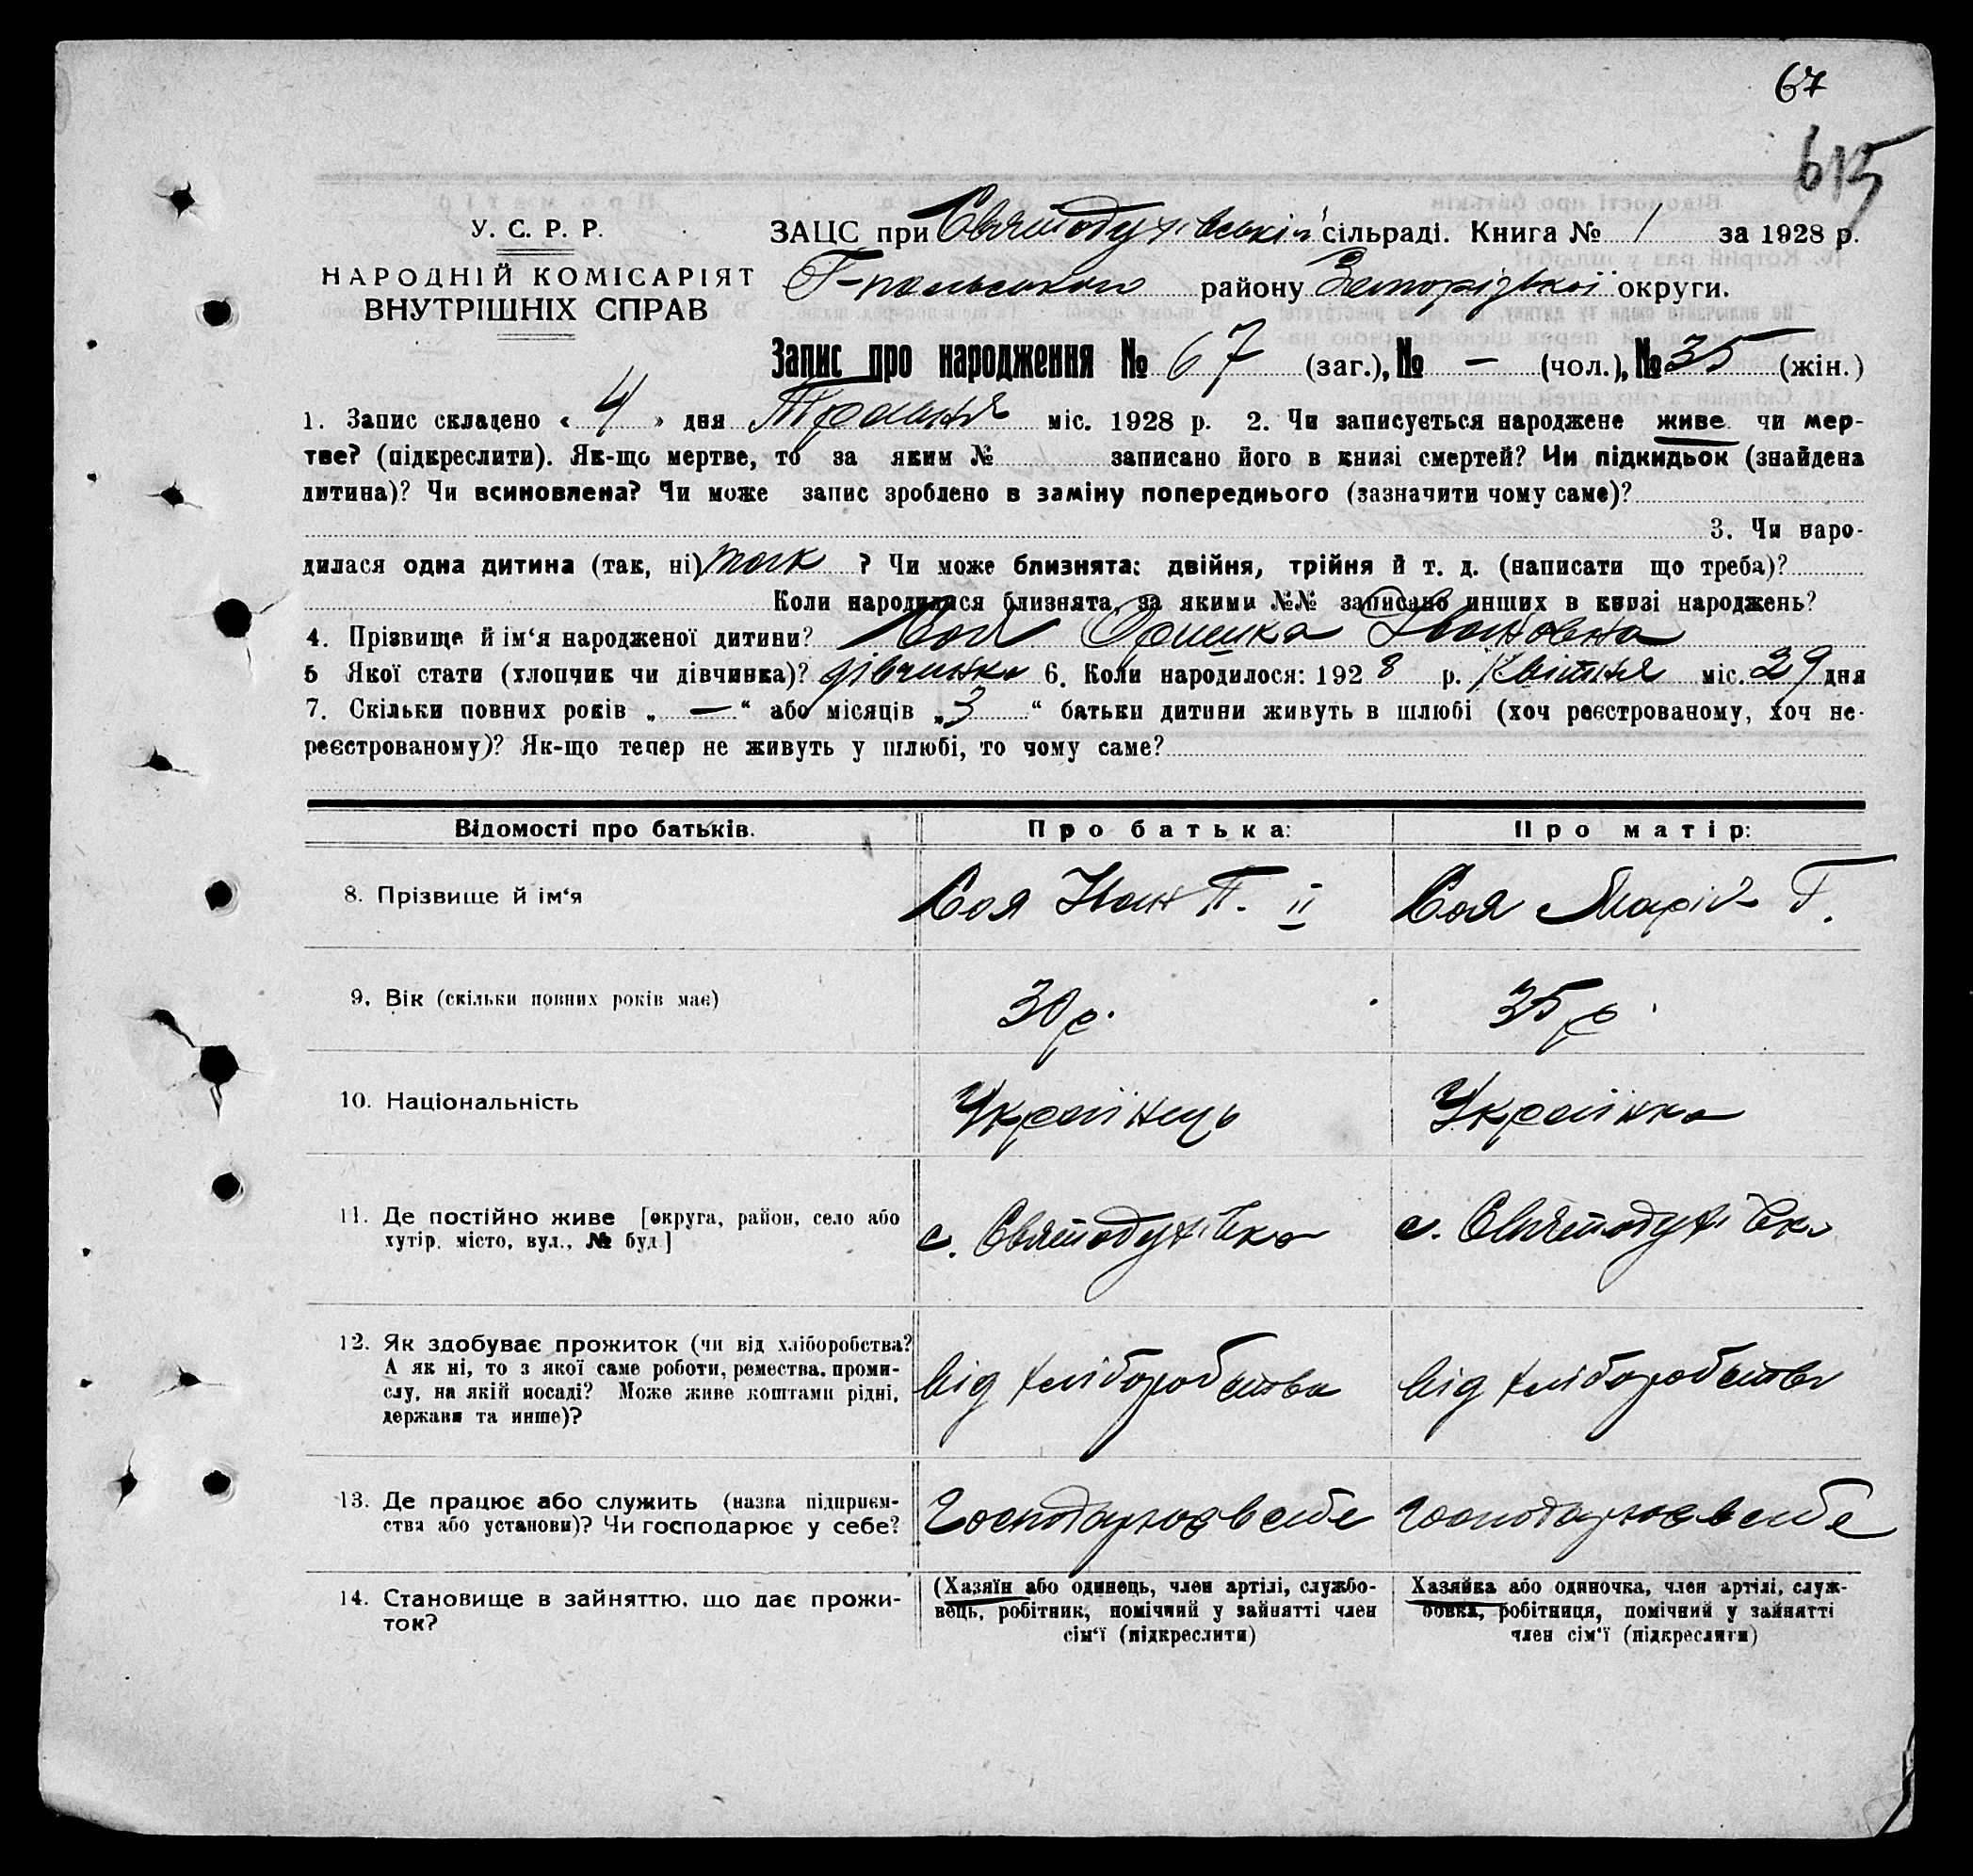 67
615
У. С. Р. Р.
НАРОДНІЙ КОМІСАРІЯТ
ВНУТРІШНІХ СПРАВ
ЗАЦС при Святодухівській сільраді. Книга № 1 за 1928 р.
району Запорізької округи.
Запис про народження № 67 (заг.), № — (чол.), № 35 (жін.)
1. Запис складено « 4 » дня Травня міс. 1928 р. 2. Чи записується народжене живе чи мер-
тве? (підкреслити). Як-що мертве, то за яким № записано його в книзі смертей? Чи підкидьок (знайдена
дитина)? Чи всиновлена? Чи може запис зроблено в заміну попереднього (зазначити чому саме)?
3. Чи наро-
дилася одна дитина (так, ні) так ? Чи може близнята: двійня, трійня й т. д. (написати що треба)?
Коли народилися близнята, за якими №№ записано инших в книзі народжень?
4. Прізвище й ім'я народженої дитини? Соя Оришка Івановна
5 Якої стати (хлопчик чи дівчинка)? дівчинка 6. Коли народилося: 1928 р. Квітня міс. 29 дня
7. Скільки повних років „ — “ або місяців „ 3 “ батьки дитини живуть в шлюбі (хоч реєстрованому, хоч не-
реєстрованому)? Як-що тепер не живуть у шлюбі, то чому саме?
Відомості про батьків. Про батька: Про матір:
8. Прізвище й ім'я Соя Іван П. II Соя Марія Г.
9. Вік (скільки повних років має) 30 р. 35 р.
10. Національність Українець Українка
11. Де постійно живе [округа, район, село або
хутір, місто, вул., № буд.] с. Святодухівка с. Святодухівка
12. Як здобуває прожиток (чи від хліборобства?
А як ні, то з якої саме роботи, ремества, проми-
слу, на якій посаді? Може живе коштами рідні,
держави та инше)? від хліборобства від хліборобства
13. Де працює або служить (назва підприєм-
ства або установи)? Чи господарює у себе? Господарює в себе господарює в себе
14. Становище в зайняттю, що дає прожи-
ток?
(Хазяїн або одинець, член артілі, службо-
вець, робітник, помічний у зайнятті член
сім'ї (підкреслити)
Хазяйка або одиночка, член артілі, служ-
бовка, робітниця, помічний у зайнятті
член сім'ї (підкреслити)